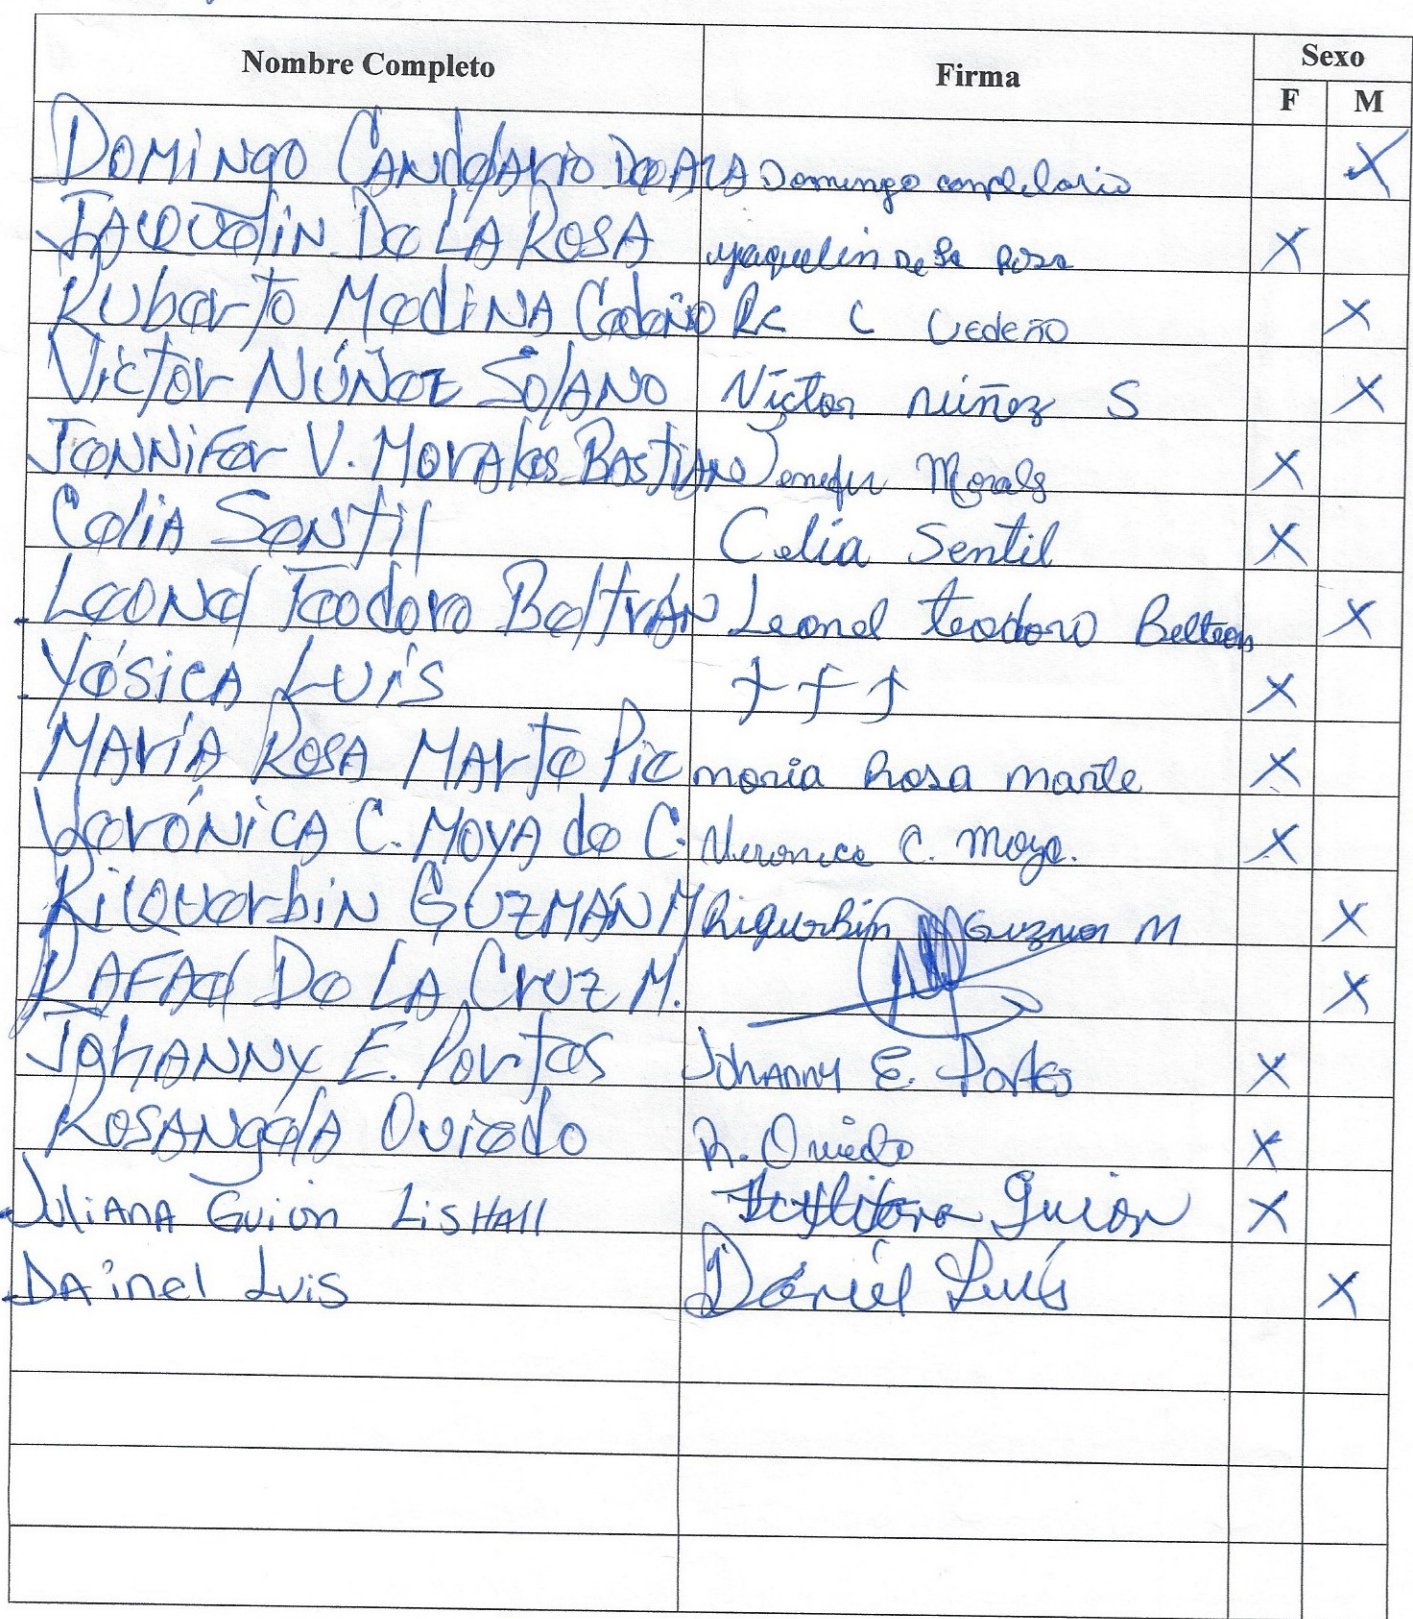 Nombre Completo Firma Sexo
F M
DOMINGO CANDELARIO DE AZA Domingo candelario X
JACQUELIN DE LA ROSA yaquelin De la Rosa X
RUBERTO MEDINA Cedeño C Cedeño X
VICTOR NÚÑEZ SOLANO Víctor núñez S X
JENNIFER V. MORALES BASTIANO Jenefer Morals X
CELIA SENTIL Celia Sentil X
LEONEL TEODORO BELTRÁN Leonel teodoro Beltran X
YÉSICA LUÍS + + + X
MARÍA ROSA MARTE PIE maria Rosa marte X
VERÓNICA C. MOYA de C. Veronica C. Moya. X
RICQUERBIN GUZMÁN M Riquerbin Guzman M X
RAFAEL DE LA CRUZ M. X
JOHANNY E. PORTES JOHANNY E. Portes X
ROSANGELA OVIEDO R. Oviedo X
JULIANA GUION LISHALL Guion X
DAINEL LUIS Daniel Luís X